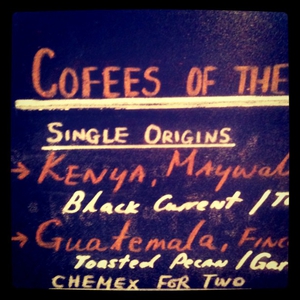 COFEES OF THE
SINGLE ORIGINS
→ KENYA, MAYWAL
Black Current / To
→ Guatemala, FINC
Toasted Pecan / Gar
CHEMEX FOR TWO